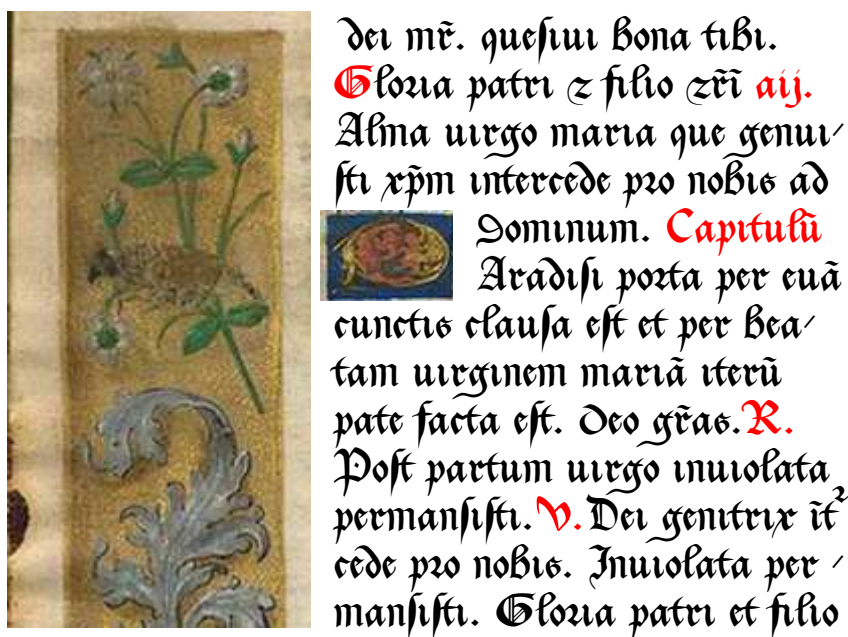 dei mr̃. quesiui bona tibi.
Gloria patri ⁊ filio ⁊r̃ı̃ aij.
Alma uirgo maria que genui/
sti xp̃m intercede pro nobis ad
Dominum. Capitulũ
Aradisi porta per euã
cunctis clausa est et per bea/
tam uirginem mariã iterũ
pate facta est. Deo gr̃as. R.
Post partum uirgo inuiolata
permansisti. V. Dei genitrix ĩt
cede pro nobis. Inuiolata per /
mansisti. Gloria patri et filio